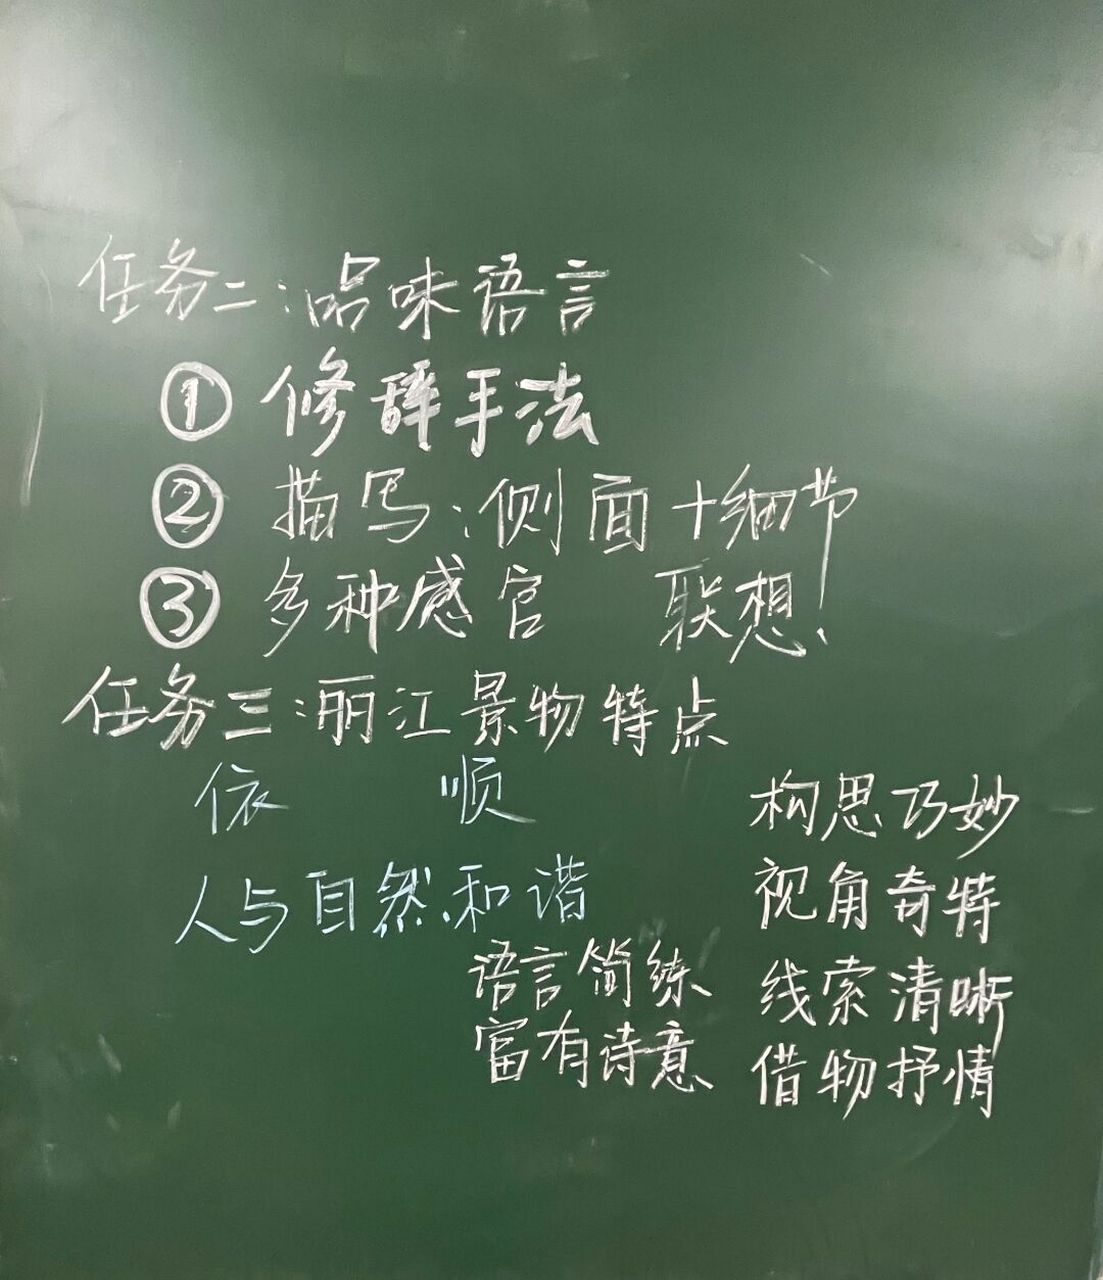 任务二:品味语言
① 修辞手法
② 描写:侧面+细节
③ 多种感官 联想!
任务三:丽江景物特点
依 顺
人与自然和谐
语言简练
富有诗意
构思巧妙
视角奇特
线索清晰
借物抒情